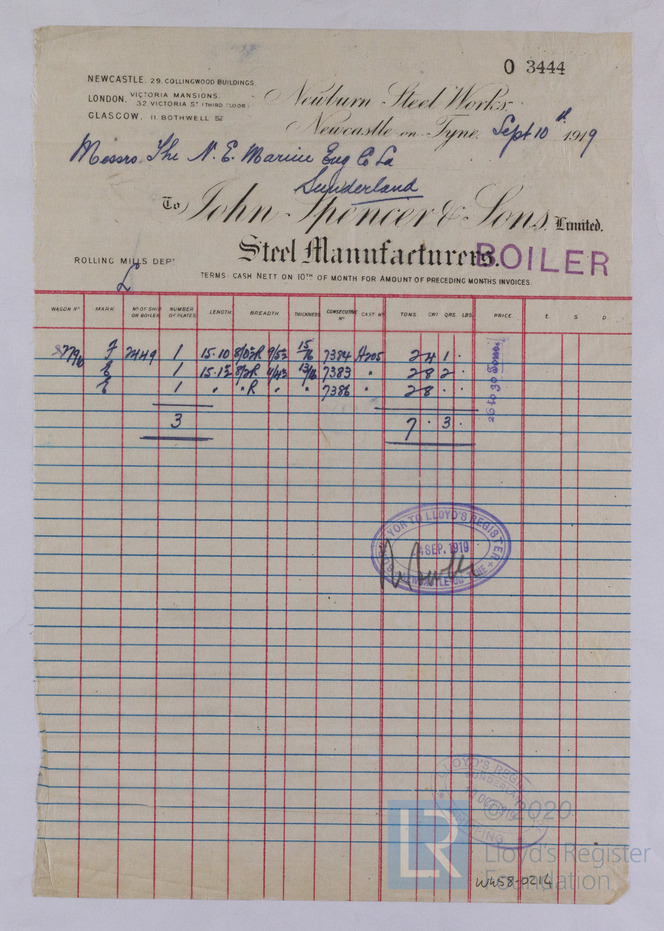 O 3444
NEWCASTLE. 29, COLLINGWOOD BUILDINGS
LONDON. VICTORIA MANSIONS,
32 VICTORIA ST (THIRD FLOOR)
GLASCOW, 11, BOTHWELL ST
Newburn Steel Works,
Newcastle on Tyne, Sept 10th 1919
Messrs The N. E. Marine Eng Co Ld
Sunderland
To John Spencer & Sons, Limited.
Steel Manufacturers.
BOILER
ROLLING MILLS DEPT
TERMS CASH NETT ON 10TH OF MONTH FOR AMOUNT OF PRECEDING MONTHS INVOICES.
WAGON No MARK No OF SHIP OR BOILER NUMBER OF PLATES LENGTH BREADTH THICKNESS CONSECUTIVE No CAST No TONS CWT QRS LBS PRICE £ S D
F 2449 1 15·10 15/16 7384 A205 2 4 1 ·
E 1 15·13 13/16 7383 " 2 8 2 ·
E 1 " " R " " 7386 " 2 8 · ·
3 7 · 3 ·
26 to 30 Tons
SURVEYOR TO LLOYD'S REGISTER
SEP. 1919
NEWCASTLE-ON-TYNE
LLOYD'S REGISTER
SUNDERLAND
OCT 1919
SHIPPING
© 2020
LR
Lloyd's Register
Foundation
WW58-0214